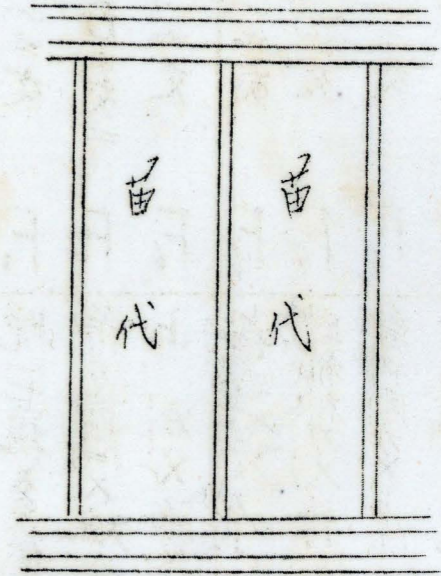 苗代
苗代